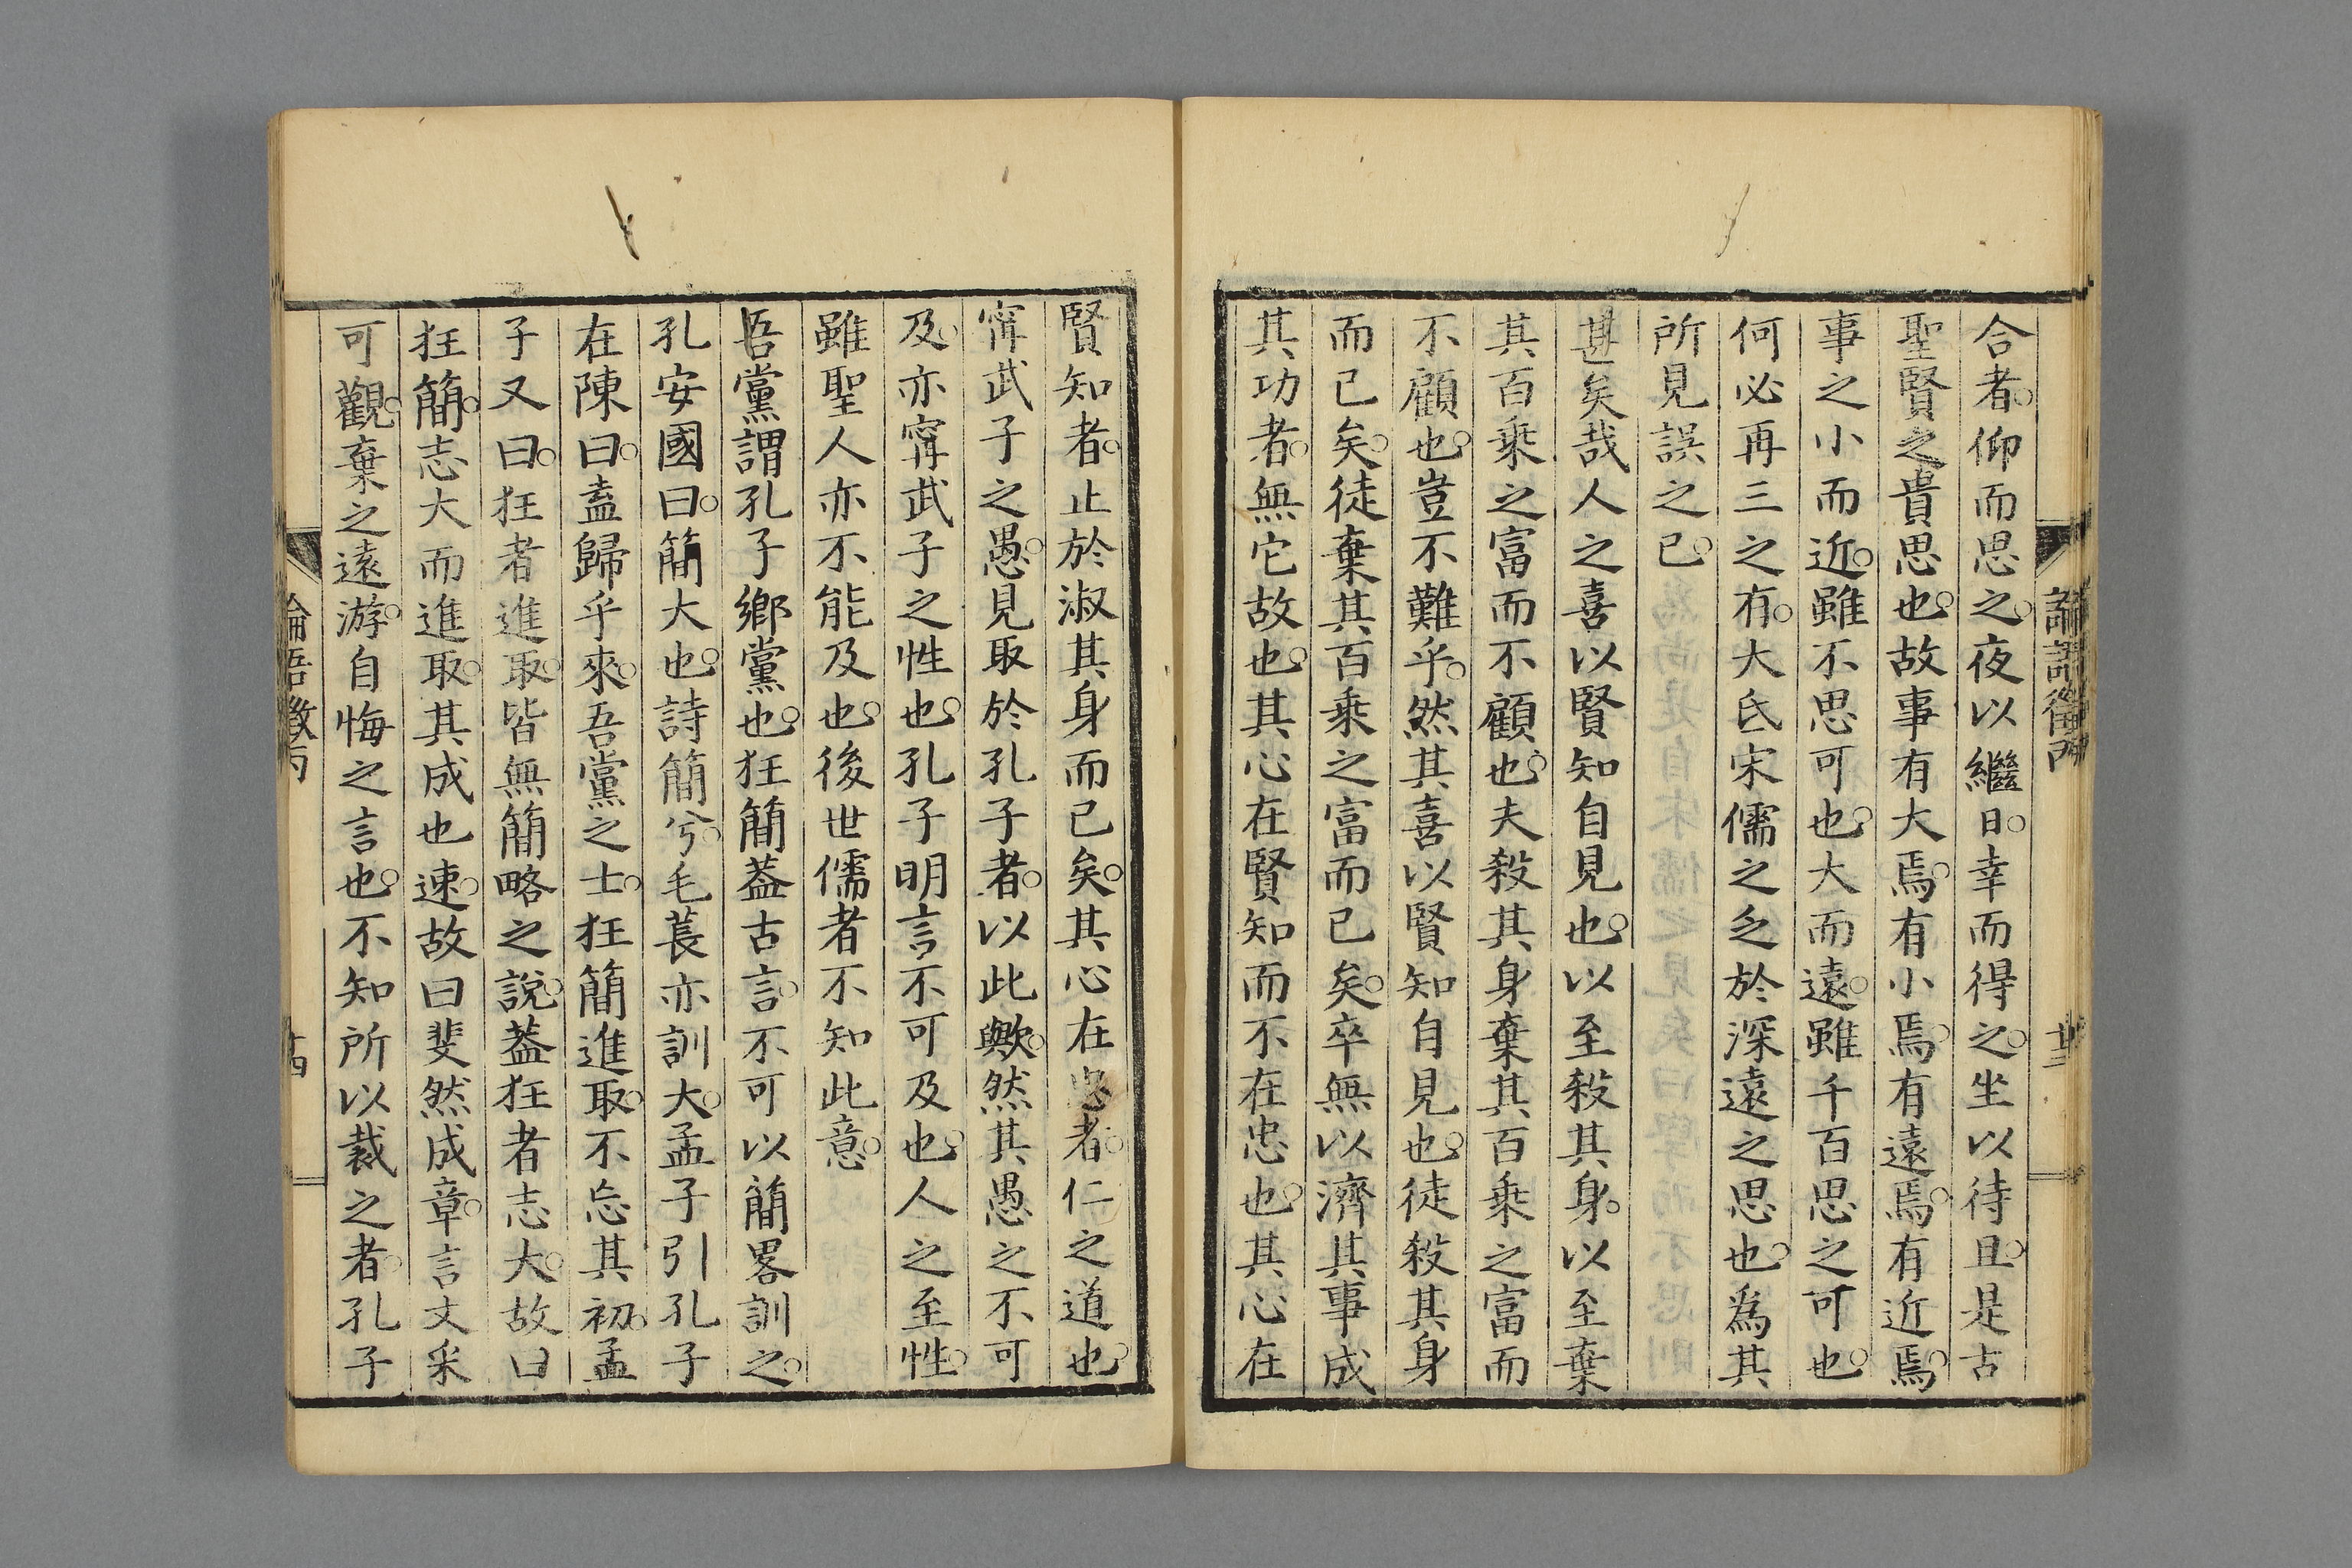 論語徵丙
廿三
合者。仰而思之。夜以繼日。幸而得之。坐以待旦。是古
聖賢之貴思也。故事有大焉。有小焉。有遠焉。有近焉。
事之小而近。雖不思可也。大而遠。雖千百思之可也。
何必再三之有。大氐宋儒之乏於深遠之思也。爲其
所見誤之已。
甚矣哉人之喜以賢知自見也。以至殺其身。以至棄
其百乘之富而不顧也。夫殺其身棄其百乘之富而
不顧也。豈不難乎。然其喜以賢知自見也。徒殺其身
而已矣。徒棄其百乘之富而已矣。卒無以濟其事成
其功者。無它故也。其心在賢知而不在忠也。其心在
賢知者。止於淑其身而已矣。其心在忠者。仁之道也。
甯武子之愚。見取於孔子者。以此歟。然其愚之不可
及。亦甯武子之性也。孔子明言不可及也。人之至性。
雖聖人亦不能及也。後世儒者不知此意。
吾黨謂孔子鄉黨也。狂簡蓋古言。不可以簡畧訓之。
孔安國曰。簡大也。詩簡兮。毛萇亦訓大。孟子引孔子
在陳曰。盍歸乎來。吾黨之士。狂簡進取。不忘其初。孟
子又曰。狂者進取。皆無簡略之說。蓋狂者志大。故曰
狂簡。志大而進取。其成也速。故曰斐然成章。言文采
可觀。棄之遠游。自悔之言也。不知所以裁之者。孔子
論語徵丙
廿四